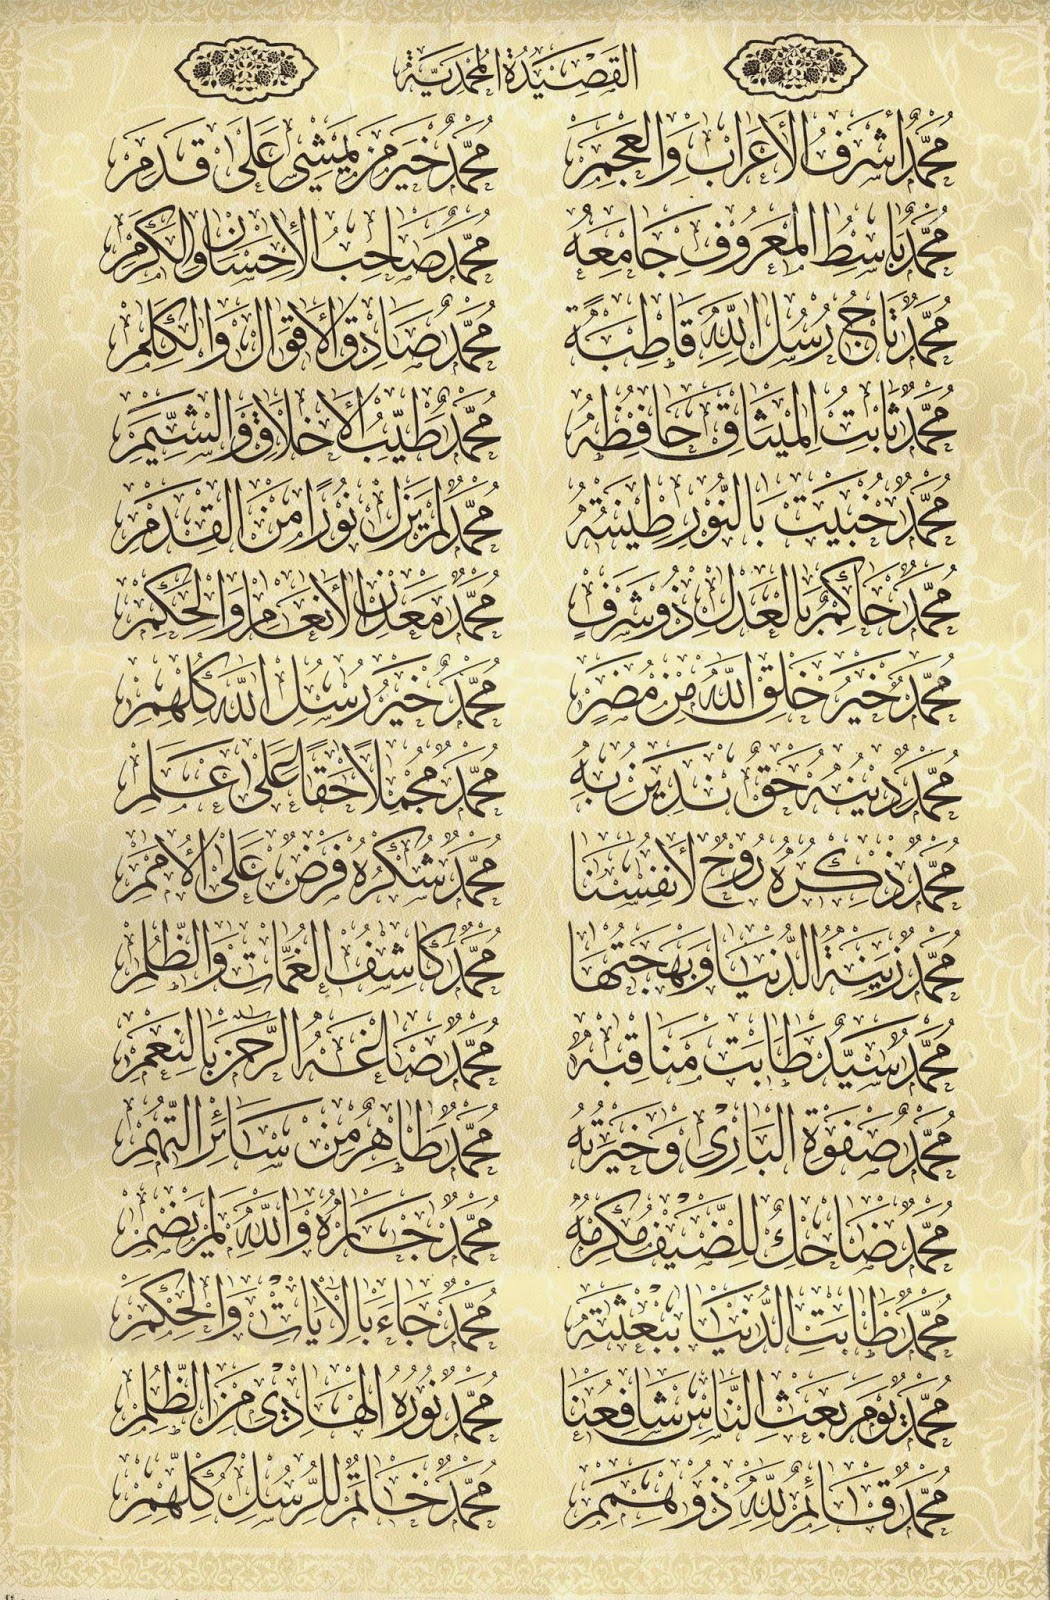 القصيدة المحمدية
محمد أشرف الأعراب والعجم محمد خير من يمشي على قدم
محمد باسط المعروف جامعه محمد صاحب الإحسان والكرم
محمد تاج رسل الله قاطبة محمد صادق الأقوال والكلم
محمد ثابت الميثاق حافظه محمد طيب الأخلاق والشيم
محمد خبيت بالنور طينته محمد لم يزل نورا من القدم
محمد حاكم بالعدل ذو شرف محمد معدن الأنعام والحكم
محمد خير خلق الله من مضر محمد خير رسل الله كلهم
محمد دينه حق ندين به محمد مجملا حقا على علم
محمد ذكره روح لأنفسنا محمد شكره فرض على الأمم
محمد زينة الدنيا وبهجتها محمد كاشف الغمات والظلم
محمد سيد طابت مناقبه محمد صاغه الرحمن بالنعم
محمد صفوة الباري وخيرته محمد طاهر من سائر التهم
محمد ضاحك للضيف مكرمه محمد جاره والله لم يضم
محمد طابت الدنيا ببعثته محمد جاء بالآيات والحكم
محمد يوم بعث الناس شافعنا محمد نوره الهادي من الظلم
محمد قائم لله ذو همم محمد خاتم للرسل كلهم